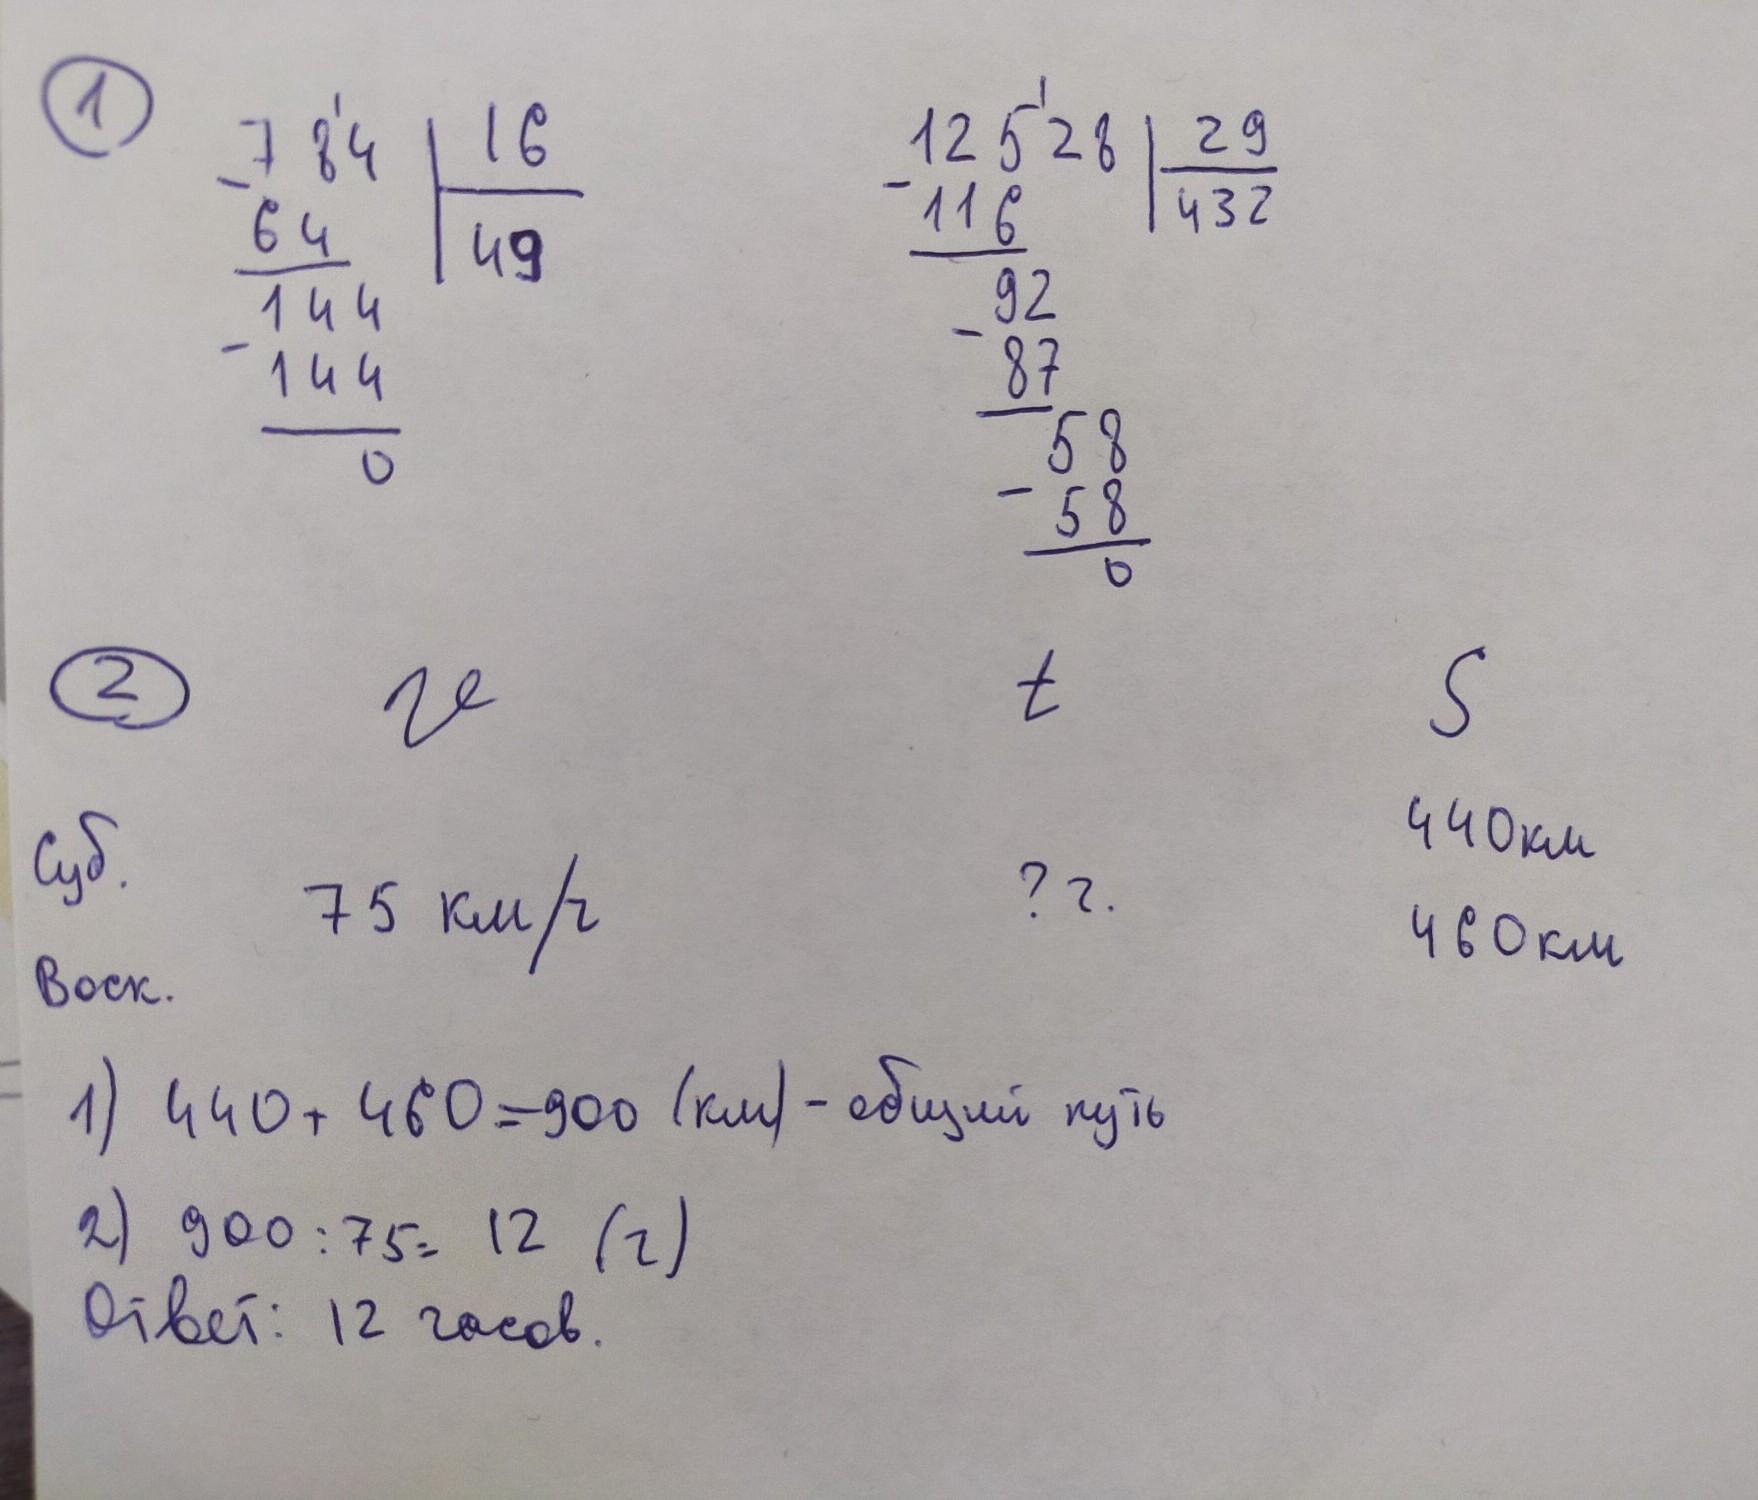 1
784 16
- 64 49
144
- 144
0
12528 29
- 116 432
92
- 87
58
- 58
0
2 v t S
Суб. 440км
75 км/ч ? ч.
Воск. 460км
1) 440+460=900 (км) - общий путь
2) 900:75= 12 (ч)
Ответ: 12 часов.